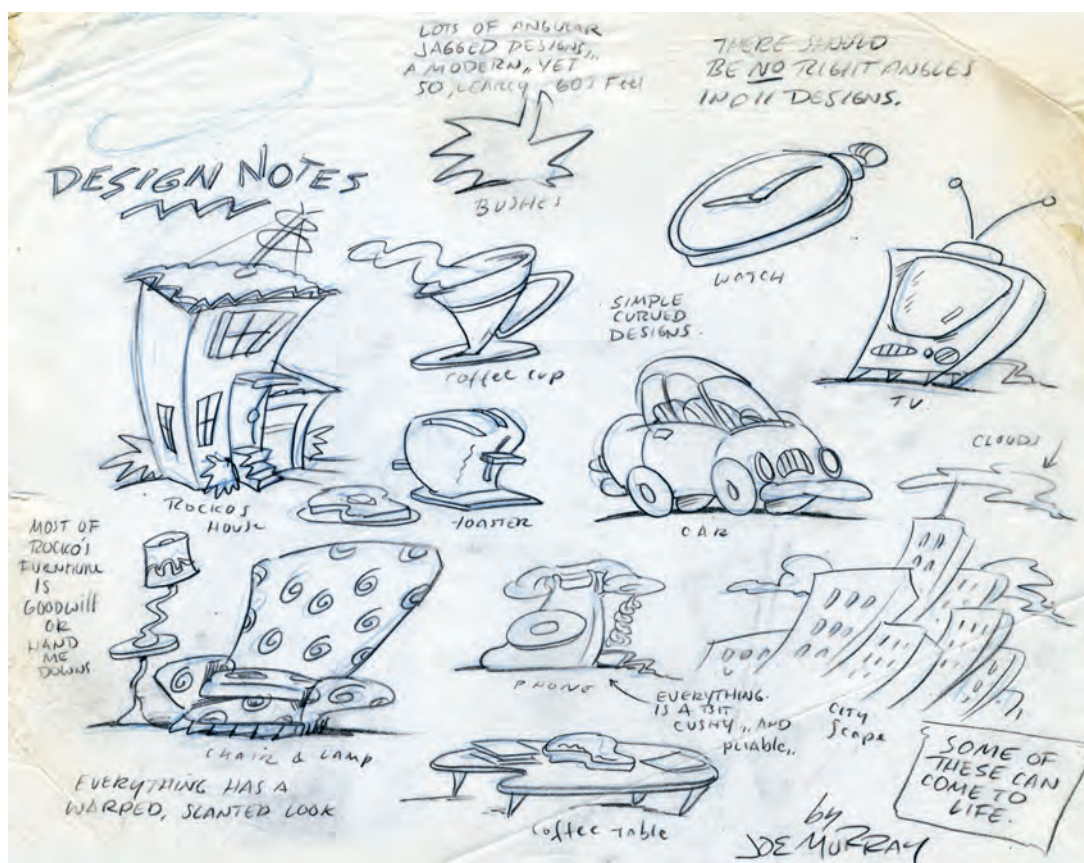 LOTS OF ANGULAR
JAGGED DESIGNS,,,
A MODERN,, YET
60S FEEL
THERE SHOULD
BE NO RIGHT ANGLES
IN DESIGNS.
DESIGN NOTES
BUSHES
WATCH
COFFEE CUP
SIMPLE
CURVED
DESIGNS.
TV.
ROCKO'S
HOUSE
TOASTER
CAR
CLOUDS
MOST OF
ROCKO'S
FURNITURE
IS
GOODWILL
OR
HAND
ME
DOWNS
PHONE
EVERYTHING
IS A BIT
CUSHY,,, AND
PLIABLE,,
CITY
SCAPE
CHAIR & LAMP
EVERYTHING HAS A
WARPED, SLANTED LOOK
COFFEE TABLE
SOME OF
THESE CAN
COME TO
LIFE.
by
JOE MURRAY